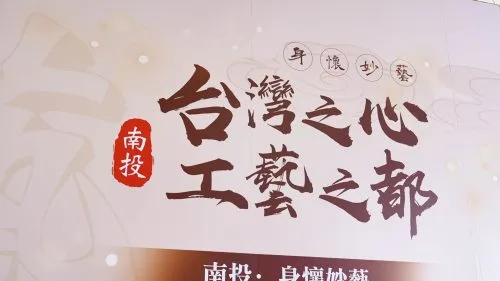 身懷妙藝
台灣之心
南投
工藝之都
南投：身懷妙藝